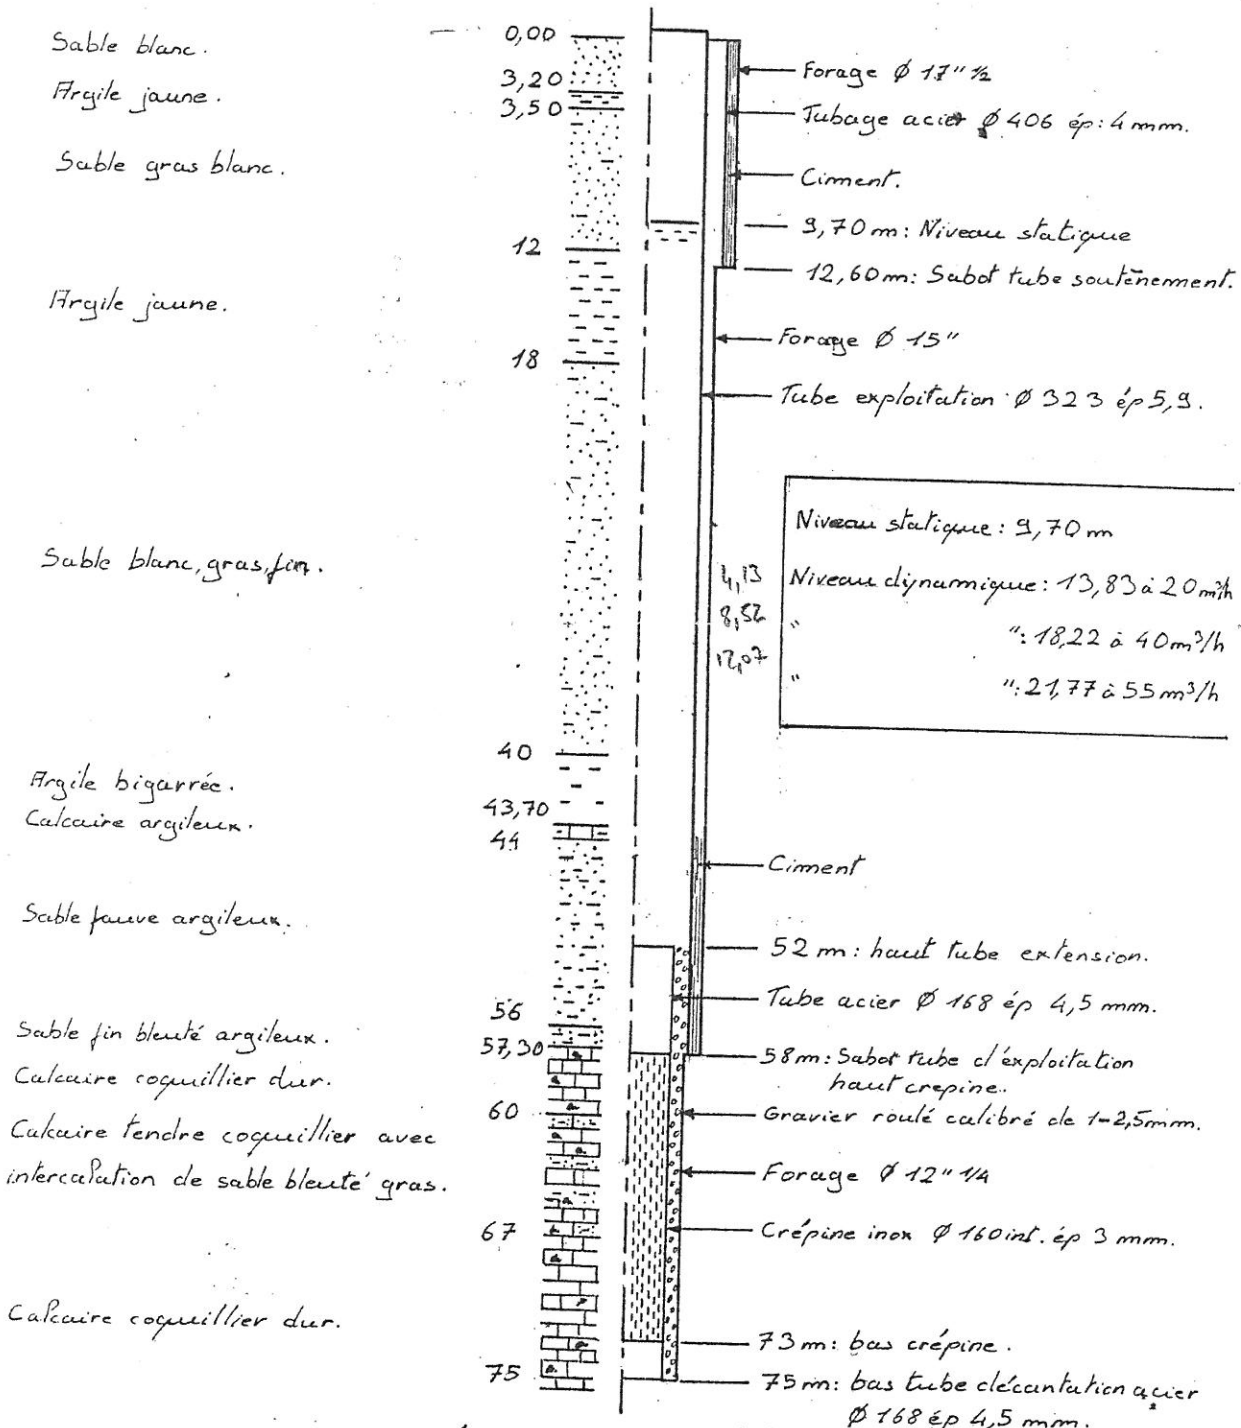 Sable blanc.
Argile jaune.
Sable gras blanc.
Argile jaune.
Sable blanc, gras, fin.
Argile bigarrée.
Calcaire argileux.
Sable fauve argileux.
Sable fin bleuté argileux.
Calcaire coquillier dur.
Calcaire tendre coquillier avec
intercalation de sable bleuté gras.
Calcaire coquillier dur.
0,00
3,20
3,50
12
18
40
43,70
44
56
57,30
60
67
75
Forage Ø 17" ½
Tubage acier Ø 406 ép: 4 mm.
Ciment.
9,70 m: Niveau statique
12,60 m: Sabot tube soutènement.
Forage Ø 15"
Tube exploitation Ø 323 ép 5,9.
Niveau statique: 9,70 m
4,13 Niveau dynamique: 13,83 à 20 m³/h
8,52 " ": 18,22 à 40 m³/h
12,07 " ": 21,77 à 55 m³/h
Ciment
52 m: haut tube extension.
Tube acier Ø 168 ép 4,5 mm.
58 m: Sabot tube d'exploitation
haut crepine.
Gravier roulé calibré de 1-2,5 mm.
Forage Ø 12" 1/4
Crépine inox Ø 160 int. ép 3 mm.
73 m: bas crépine.
75 m: bas tube décantation acier
Ø 168 ép 4,5 mm.